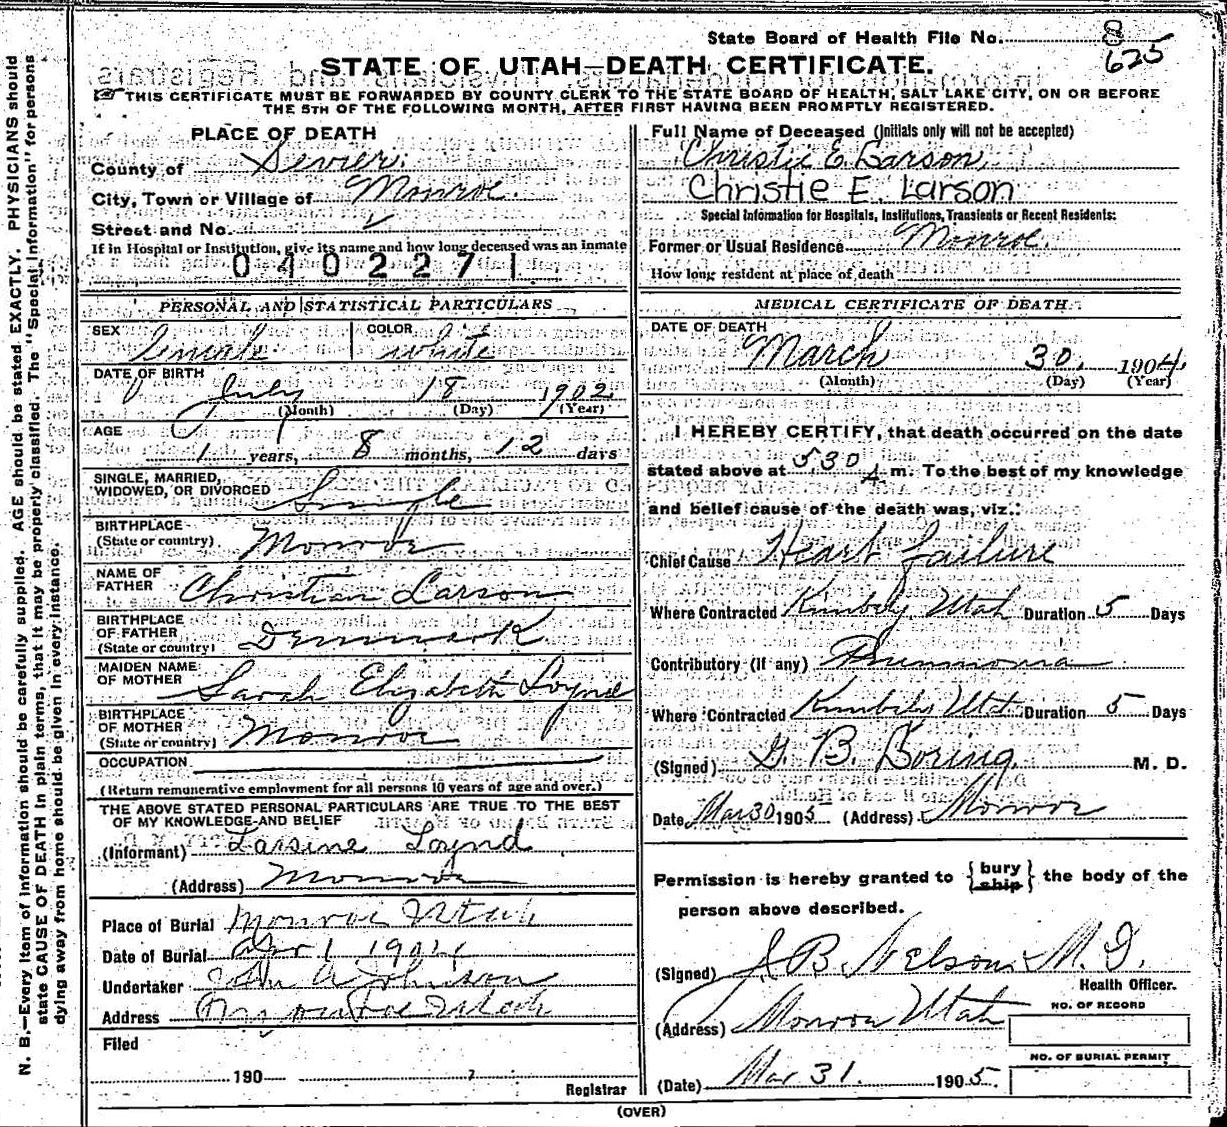 State Board of Health File No. 8
625
STATE OF UTAH—DEATH CERTIFICATE.
THIS CERTIFICATE MUST BE FORWARDED BY COUNTY CLERK TO THE STATE BOARD OF HEALTH, SALT LAKE CITY, ON OR BEFORE
THE 5TH OF THE FOLLOWING MONTH, AFTER FIRST HAVING BEEN PROMPTLY REGISTERED.
PLACE OF DEATH
County of Sevier.
City, Town or Village of Monroe.
Street and No.
If in Hospital or Institution, give its name and how long deceased was an inmate
0402271
PERSONAL AND STATISTICAL PARTICULARS
SEX Female COLOR White
DATE OF BIRTH July 18 1902
(Month) (Day) (Year)
AGE 1 years, 8 months, 12 days
SINGLE, MARRIED,
WIDOWED, OR DIVORCED Single
BIRTHPLACE
(State or country) Monroe
NAME OF
FATHER Christian Larson
BIRTHPLACE
OF FATHER
(State or country) Denmark
MAIDEN NAME
OF MOTHER Sarah Elizabeth Loynd
BIRTHPLACE
OF MOTHER
(State or country) Monroe
OCCUPATION
(Return remunerative employment for all persons 10 years of age and over.)
THE ABOVE STATED PERSONAL PARTICULARS ARE TRUE TO THE BEST
OF MY KNOWLEDGE AND BELIEF
(Informant) Larsine Loynd
(Address) Monroe
Place of Burial Monroe Utah
Date of Burial Apr 1 1904
Undertaker John A Johnson
Address Monroe Utah
Filed
190 ,
Registrar
Full Name of Deceased (Initials only will not be accepted)
Christie E. Larson.
Christie E. Larson
Special Information for Hospitals, Institutions, Transients or Recent Residents:
Former or Usual Residence Monroe.
How long resident at place of death
MEDICAL CERTIFICATE OF DEATH
DATE OF DEATH
March 30. 1904.
(Month) (Day) (Year)
I HEREBY CERTIFY, that death occurred on the date
stated above at 530 A m. To the best of my knowledge
and belief cause of the death was, viz.:
Chief Cause Heart failure
Where Contracted Kimbely Utah Duration 5 Days
Contributory (If any) Pnumonia
Where Contracted Kimbely Utah Duration 5 Days
(Signed) G. B. Boring M. D.
Date Mar 30 1905 (Address) Monroe
Permission is hereby granted to {bury
ship} the body of the
person above described.
(Signed) J B Nelson M. D.
Health Officer.
(Address) Monroe Utah
NO. OF RECORD
NO. OF BURIAL PERMIT
(Date) Mar 31. 1905.
(OVER)
N. B.—Every item of information should be carefully supplied. AGE should be stated EXACTLY. PHYSICIANS should
state CAUSE OF DEATH in plain terms, that it may be properly classified. The "Special Information" for persons
dying away from home should be given in every instance.